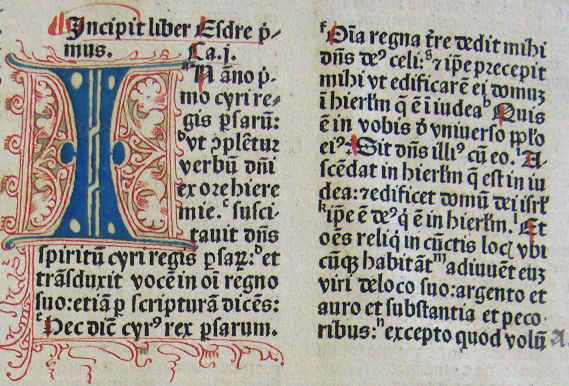 Incipit liber Esdre p̄-
mus. Ca. j.
IN āno p̄-
mo cyri re-
gis ꝑsarū:
ᵇvt ꝯplēretur
verbū dn̄i
ex ore hiere
mie. ᶜ susci-
tauit dn̄s
spiritū cyri regis ꝑsaꝝ: ᵈ et
trāsduxit vocē in oī regno
suo: etiā ꝑ scripturā dicēs:
ᵉ Hec dīc̄ cyrꝰ rex ꝑsarum.
ᶠ Oīa regna tr̄re dedit mihi
dn̄s deꝰ celi: ᵍ ⁊ ip̄e precepit
mihi vt edificarē ei domuꝫ
ī hierl̄m q̄ ē ī iudea ʰ Quis
ē in vobis d̄ vniuerso ppl̄o
eiꝰ. Sit dn̄s illiꝰ cū eo. ⁱ A-
scēdat in hierl̄m q̄ est in iu
dea: ⁊ edificet domū dei isrl̄
ᵏ ip̄e ē deꝰ q̄ ē in hierl̄m. ˡ Et
oēs reliq̄ in cūctis locꝭ vbi
cūqꝫ habitāt ᵐ adiuuēt euꝫ
viri de loco suo: argento et
auro et substantia et peco-
ribus: ⁿ excepto quod volū